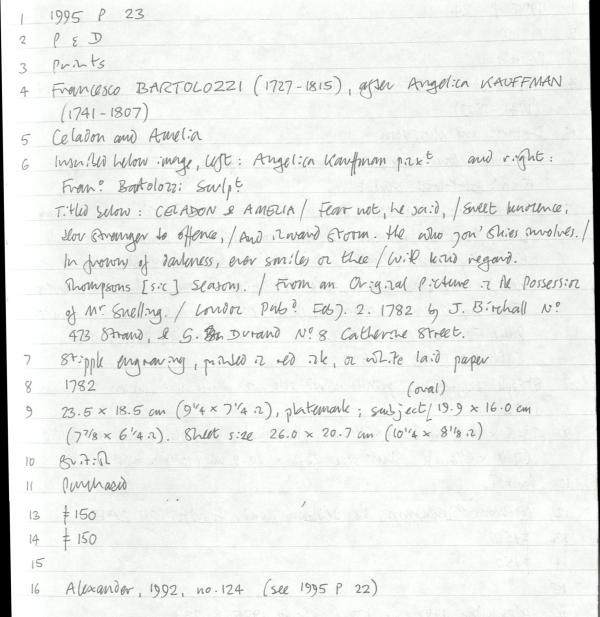 1 1995 P 23
2 P & D
3 Prints
4 Francesco BARTOLOZZI (1727-1815), after Angelica KAUFFMAN
(1741-1807)
5 Celadon and Amelia
6 Inscribed below image, left: Angelica Kauffman pinxt and right:
Frano Bartolozzi Sculpt
Titled below: CELADON & AMELIA / Fear not, he said, / Sweet Innocence,
thou Stranger to offence, / And inward Storm. He who yon' Skies involves, /
In frowns of darkness, ever smiles on thee / With kind regard.
Thompsons [sic] Seasons. / From an Original Picture in the Possession
of Mr Snelling. / London Pubd Feby. 2. 1782 by J. Birchall No
473 Strand, & G. Durand No 8 Catherine Street.
7 Stipple engraving, printed in red ink, on white laid paper
8 1782
9 23.5 x 18.5 cm (9 1/4 x 7 1/4 in), platemark; subject (oval) 19.9 x 16.0 cm
(7 7/8 x 6 1/4 in). Sheet size 26.0 x 20.7 cm (10 1/4 x 8 1/8 in)
10 British
11 Purchased
13 150
14 150
15
16 Alexander, 1992, no. 124 (see 1995 P 22)